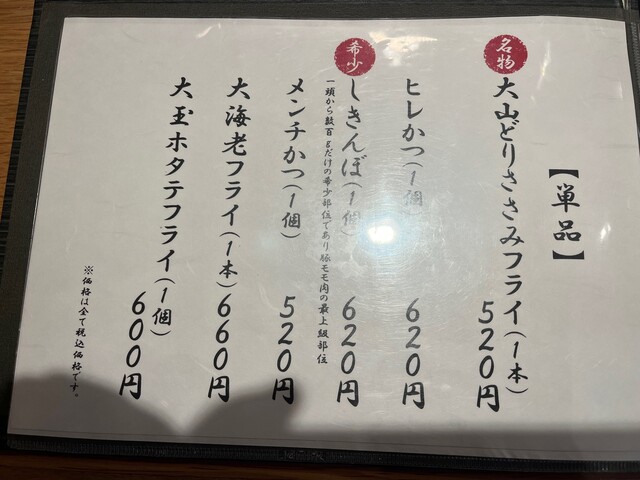 【単品】
名物
大山どりささみフライ(1本)
520円
ヒレかつ(1個)
620円
希少
しきんぼ(1個)
620円
一頭から数百gだけの希少部位であり豚モモ肉の最上級部位
メンチかつ(1個)
520円
大海老フライ(1本)
660円
大玉ホタテフライ(1個)
600円
※価格は全て税込価格です。